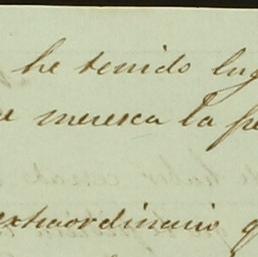 he tenido lug
meresca la pe
extraordinario q